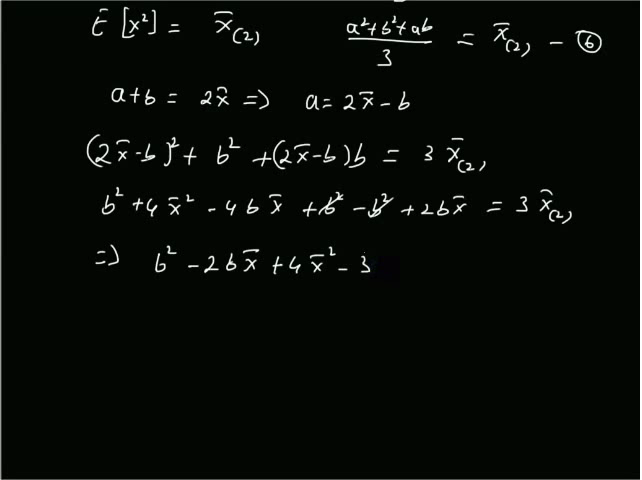 E [x²] = x̄₍₂₎   (a²+b²+ab)/3 = x̄₍₂₎ — ⑥
a+b = 2x̄ => a = 2x̄ - b
(2x̄-b)² + b² + (2x̄-b)b = 3 x̄₍₂₎
b² + 4x̄² - 4bx̄ + b² - b² + 2bx̄ = 3 x̄₍₂₎
=> b² - 2bx̄ + 4x̄² - 3